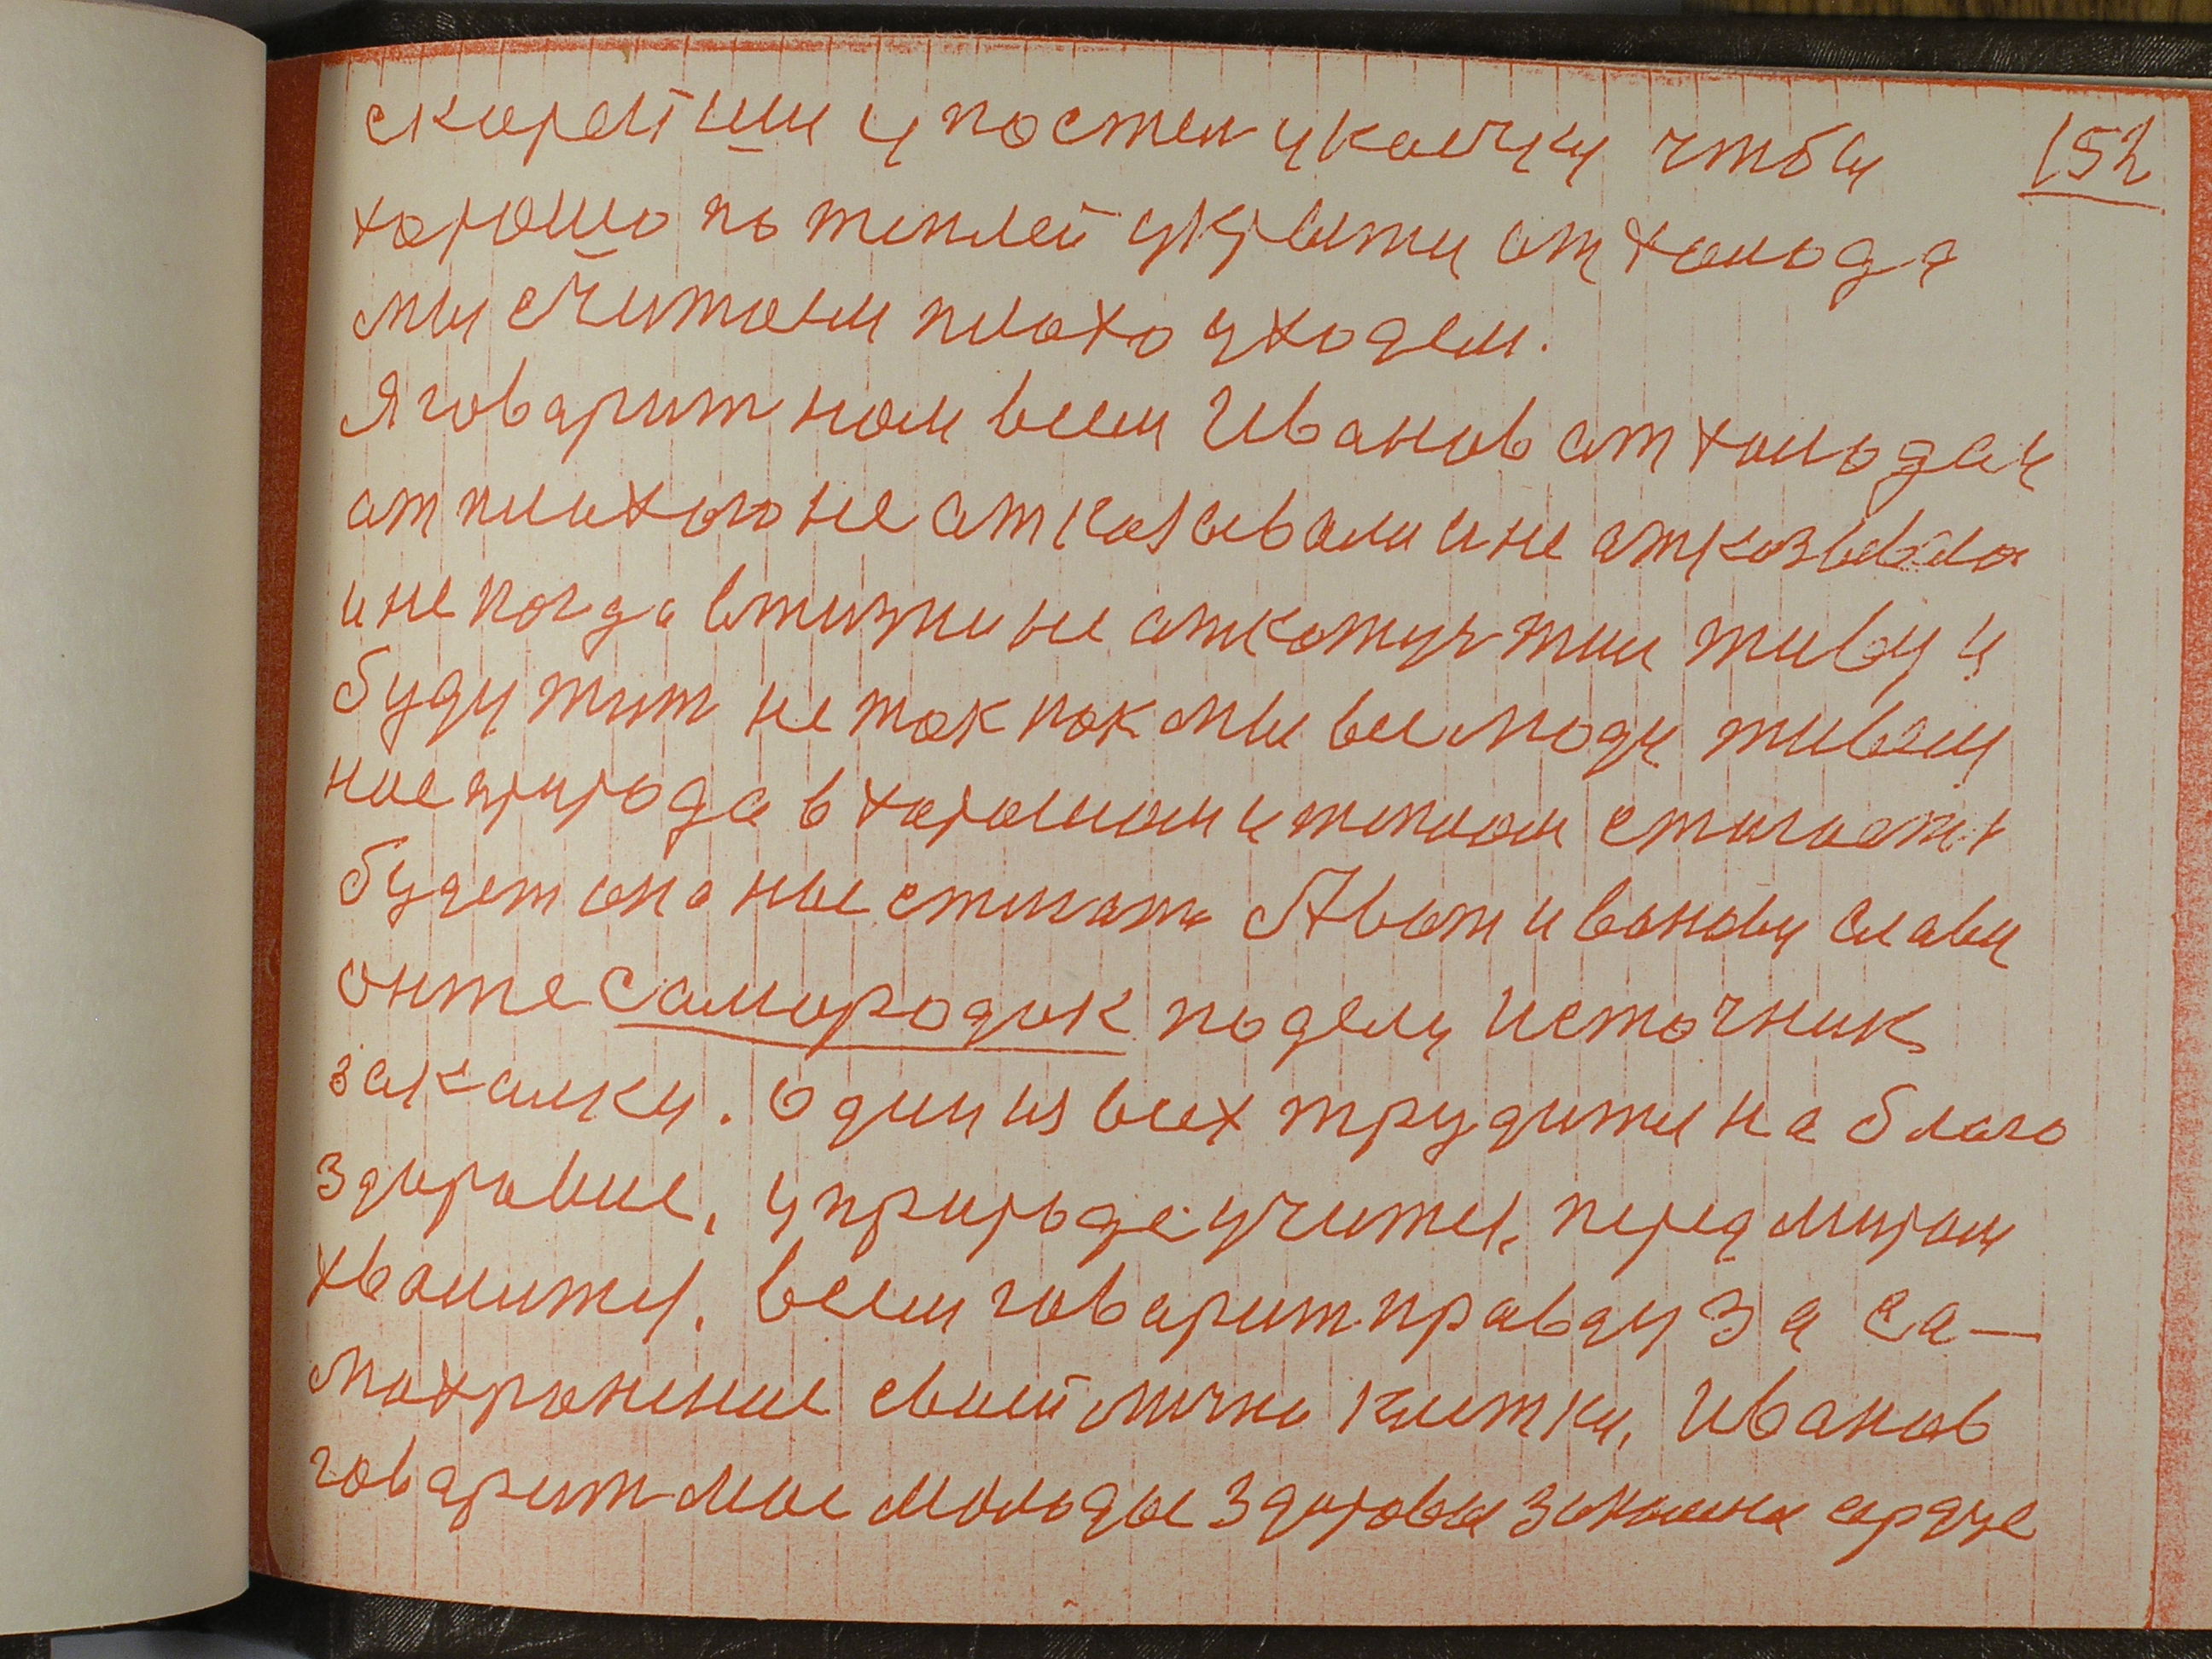 скорей или у постел у коечку чтбы 152
хорошо по теплей укрыти от холода
мы считаем плохо уходем.
Я говарит нам всем Иванов от холода и
от плохого не отказывали и не отказывала
и не когда в жизни не откажусь жил живу и
буду жит не так как мы все люди живем
нас природа в хорошом и теплом стигает и
будет она нас стигать А вот Иванову слава
он же самородок по делу источник
закалки. Один из всех трудитися на благо
здоровие, у природе учитися, перед миром
хвалится, всем говарит правду за са—
махранение своей лично клетки, Иванов
говарит мое молодое здоровое закаленое сердце